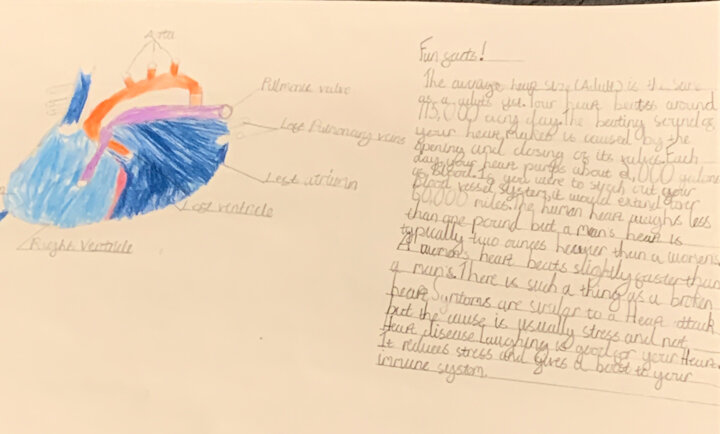 Aorta
Pulmonic valve
Left Pulmonary veins
Left atrium
Left ventricle
Right ventricle
Fun facts!
The average heart size (Adult) is the same
as a adults fist. Your heart beates around
115,000 every day. The beating sound of
your heart makes is caused by the
opening and closing of its valves. Each
day, your heart pumps about 2,000 gallons
of Blood. If you were to strech out your
Blood vessel system, it would extend over
60,000 miles. The human heart weighs less
than one pound but a man's heart is
typically two ounces heavier than a womens.
A women's heart beats slightly faster than
a man's. There is such a thing as a broken
heart. Symtoms are similar to a Heart attack
but the cause is usually stress and not
Heart disease. Laughing is good for your Heart.
It reduces stress and gives a boost to your
immune system.